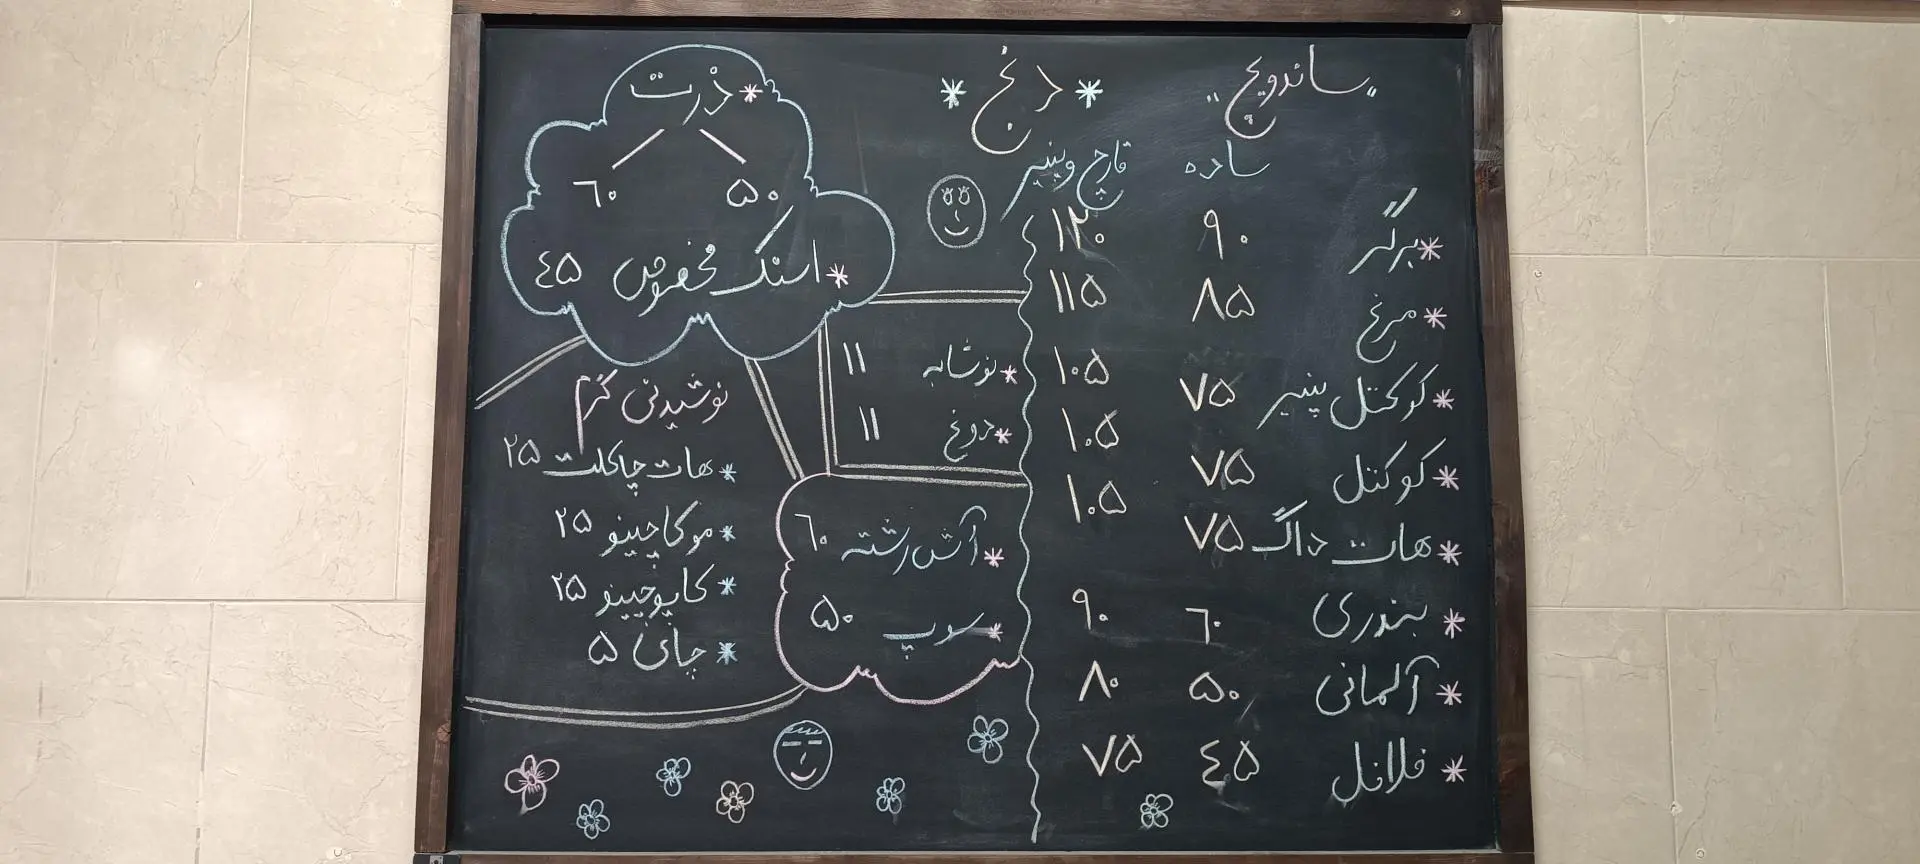 "ساندویچ"
* دنج *
ساده قارچ و پنیر
* برگر ۹۰ ۱۲۰
* مرغ ۸۵ ۱۱۵
* کوکتل پنیر ۷۵ ۱۰۵
* کوکتل ۷۵ ۱۰۵
* هات داگ ۷۵ ۱۰۵
* بندری ٦۰ ۹۰
* آلمانی ۵۰ ۸۰
* فلافل ٤۵ ۷۵
* ذرت
۵۰ ٦۰
* اسنک مخصوص ٤۵
* نوشابه ۱۱
* دوغ ۱۱
* آش رشته ٦۰
* سوپ ۵۰
نوشیدنی گرم
* هات چاکلت ۲۵
* موکاچینو ۲۵
* کاپوچینو ۲۵
* چای ۵